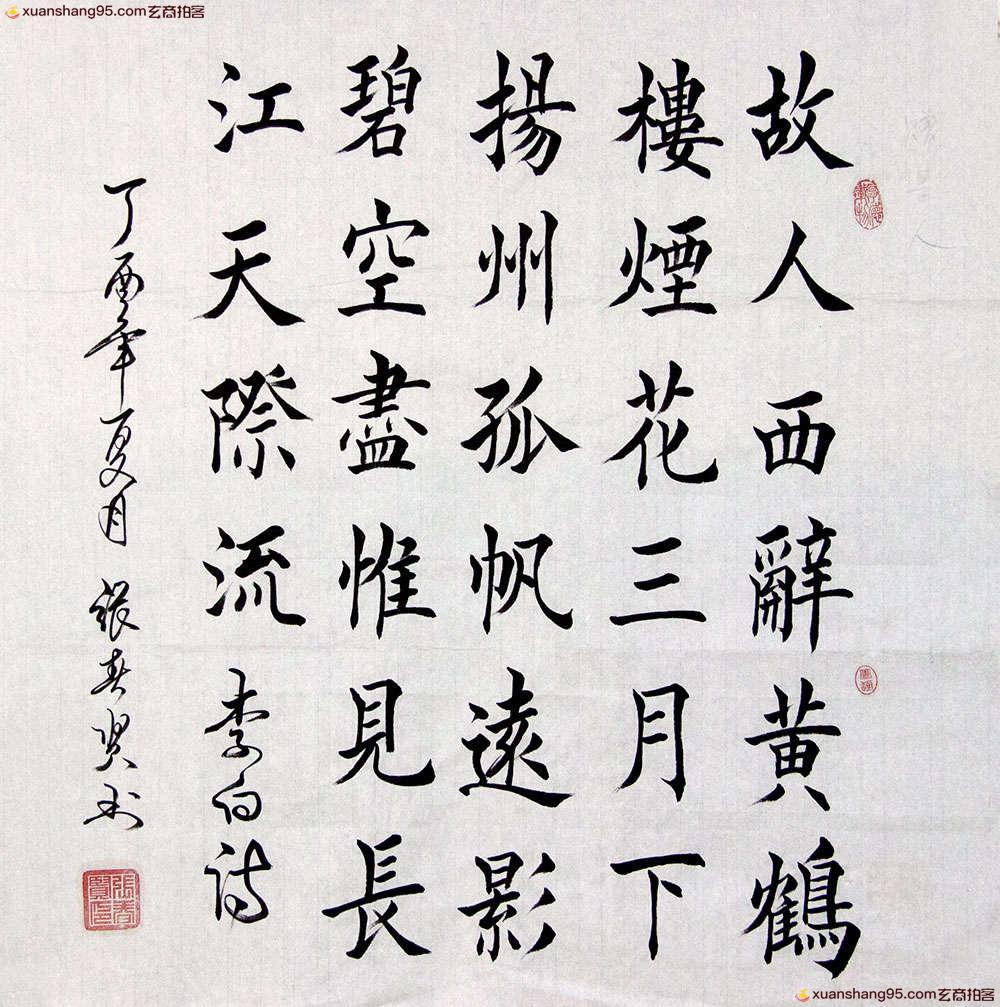 xuanshang95.com玄商拍客
故人西辭黄鶴
樓煙花三月下
揚州孤帆遠影
碧空盡惟見長
江天際流李白詩
丁酉年夏月張春賢书
張春賢印
xuanshang95.com玄商拍客